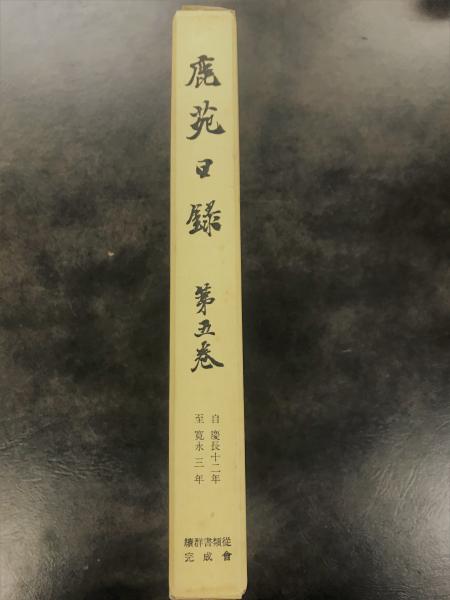 鹿苑日録
第五巻
自慶長十二年
至寛永三年
續群書類從
完成會